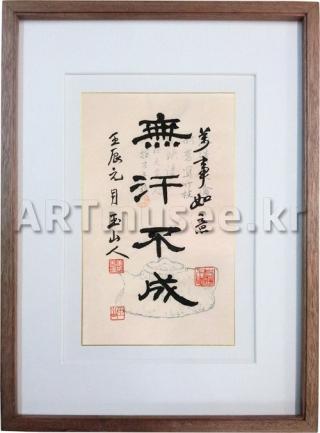 萬事如意
無汗不成
壬辰元月玉山人
ARTmusee.kr